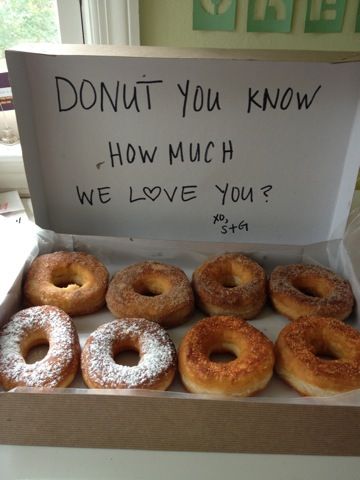 DONUT YOU KNOW
HOW MUCH
WE L♡VE YOU?
XO,
S+G